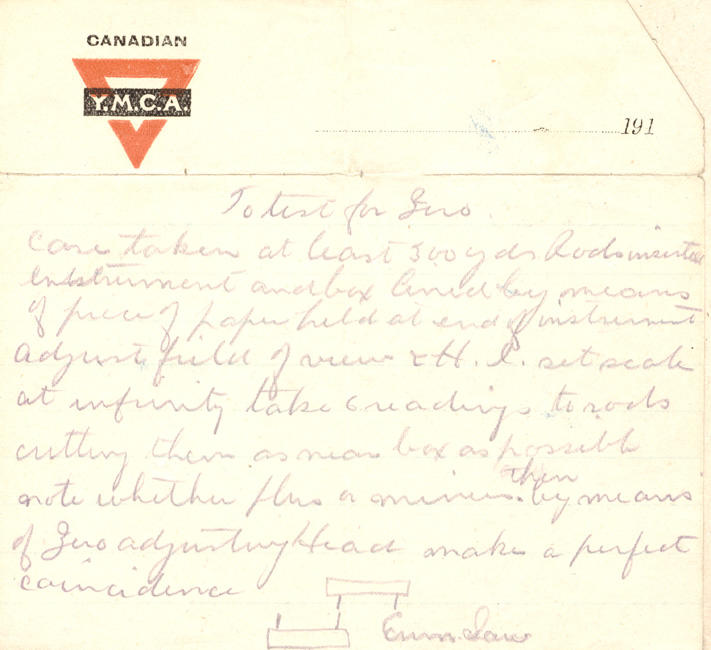 CANADIAN
Y.M.C.A.
191
To test for Zero
Case taken at least 300 yds Rods inserted
instrument and box lined by means
of piece of paper held at end of instrument
adjust field of view & H. I. set scale
at infinity take 6 readings to rods
cutting them as near box as possible
note whether plus or minus. then by means
of Zero adjusting Head make a perfect
coincidence